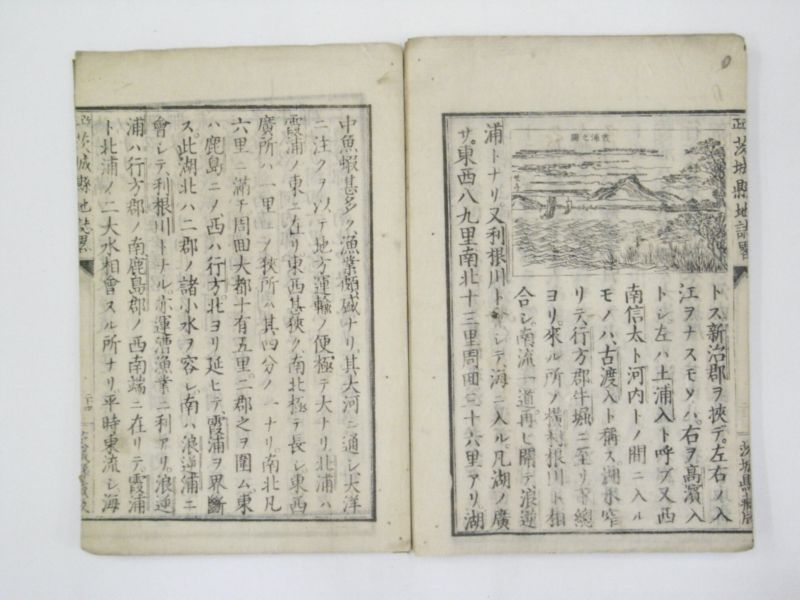 霞浦之圖
トス新治郡ヲ挾デ左右ノ入
江ヲナスモノハ右ヲ高濱入
トシ左ハ土浦入ト呼ブ又西
南信太ト河内トノ間ニ入ル
モノハ古渡入ト稱ス湖水窄
リテ行方郡牛堀ニ至リ下總
ヨリ來ル所ノ横利根川ト相
合シ南流一道再ヒ開テ浪逆
浦トナリ又利根川トナシテ海ニ入ル凡湖ノ廣
サ東西八九里南北十三里周回三十六里アリ湖
茨城縣地誌畧
茨城縣
中魚蝦甚多ク漁業頗盛ナリ其大河ニ通シ大洋
ニ注クヲ以テ地方運輸ノ便極テ大ナリ北浦ハ
霞浦ノ東ニ在リ東西甚狹ク南北極テ長シ東西
廣所ハ一里ニ狹所ハ其四分ノ一ナリ南北凡
六里ニ滿チ周回大都十有五里二郡之ヲ圍ム東
ハ鹿島ニノ西ハ行方北ヨリ延ヒテ霞浦ヲ界斷
ス此湖北ハ二郡ノ諸小水ヲ容レ南ハ浪逆浦ニ
會シテ利根川トナル亦運漕漁業ニ利アリ浪逆
浦ハ行方郡ノ南鹿島郡ノ西南端ニ在リテ霞浦
ト北浦ノ二大水相會スル所ナリ平時東流シ海
茨城縣地誌畧